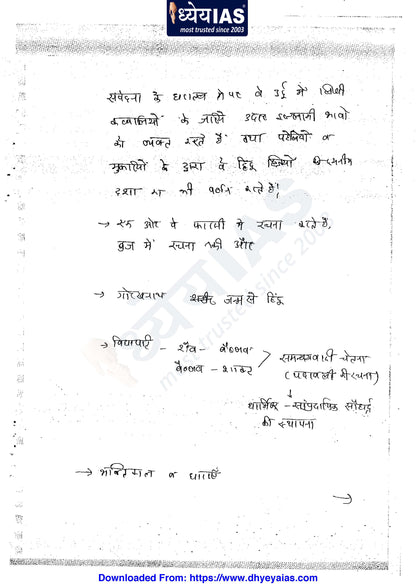 ध्येयIAS
most trusted since 2003
संवेदना के धरातल पर वे उर्दू में लिखी
कव्वालियों के जरिये उदार इस्लामी भावों
को व्यक्त करते हैं तथा पहेलियों व
मुकरियों के द्वारा वे हिंदू स्त्रियों की दयनीय
दशा का भी वर्णन करते हैं।
→ एक ओर वे फारसी में रचना करते हैं,
ब्रज में रचना की और
→ गोरखनाथ जन्म से हिंदू
→ विद्यापति - शैव - वैष्णव
वैष्णव - शाक्त
समन्वयवादी चेतना
(पदावली में रचना)
↓
धार्मिक - सांप्रदायिक सौहार्द्र
की स्थापना
→ भक्तिकाल व धाराएँ
Downloaded From: https://www.dhyeyaias.com